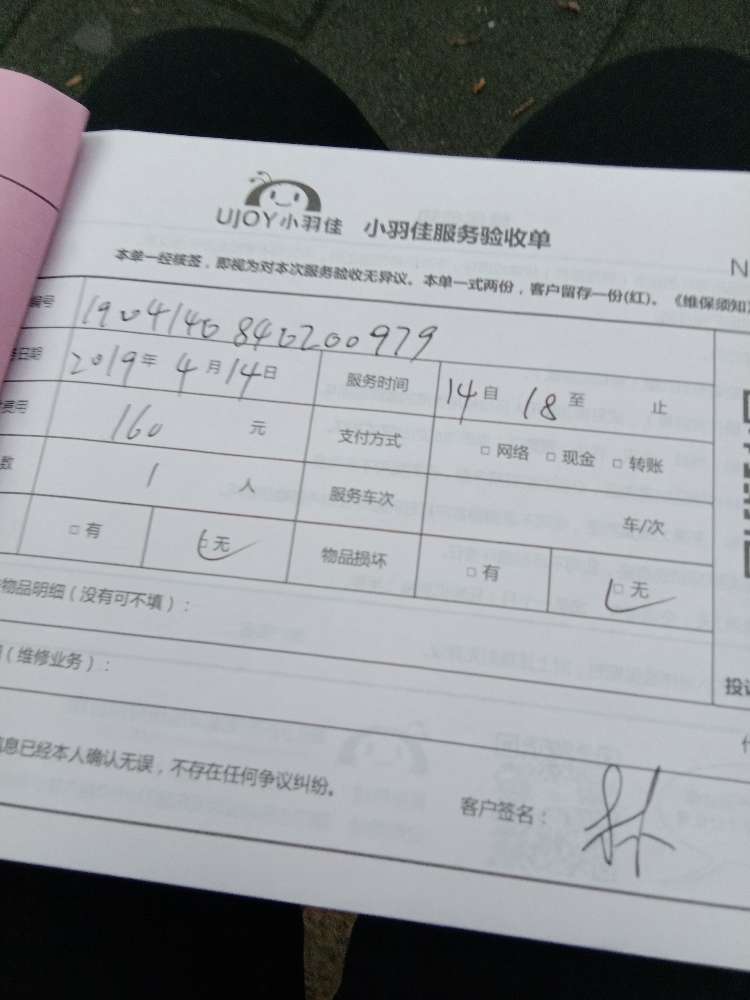 UJOY小羽佳 小羽佳服务验收单
N
本单一经核签，即视为对本次服务验收无异议。本单一式两份，客户留存一份(红)。《维保须知》
编号 190414084020 0979
日期 2019年 4月 14日 服务时间 14自 18至 止
费用 160 元 支付方式 □网络 □现金 □转账
数 1 人 服务车次 车/次
□有 □无 物品损坏 □有 □无
物品明细（没有可不填）：
（维修业务）：
投
信息已经本人确认无误，不存在任何争议纠纷。
客户签名：